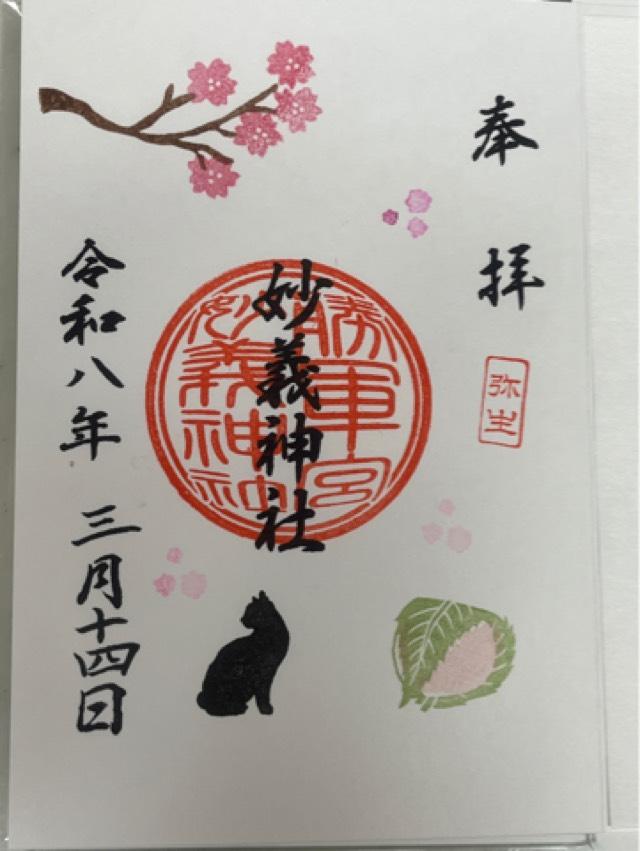 奉拝
弥生
妙義神社
勝軍宮
妙義神社
令和八年 三月十四日